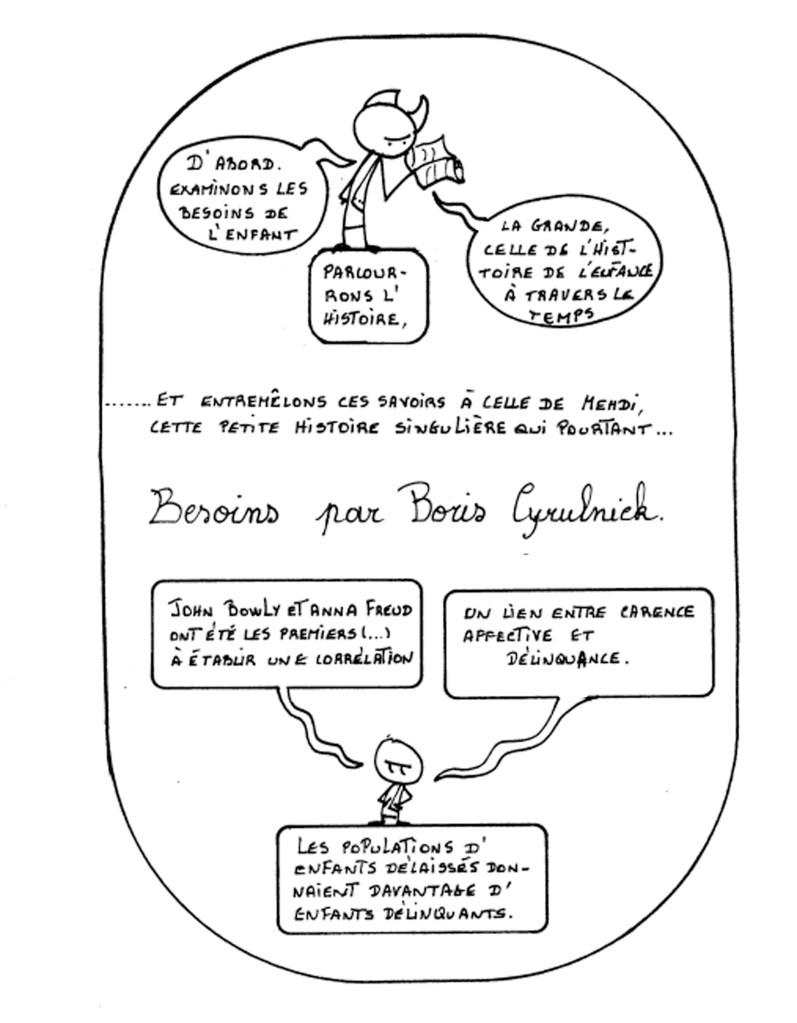 D'ABORD.
EXAMINONS LES
BESOINS DE
L'ENFANT
PARCOUR-
RONS L'
HISTOIRE,
LA GRANDE,
CELLE DE L'HIST-
TOIRE DE L'ENFANCE
À TRAVERS LE
TEMPS
....... ET ENTREMÊLONS CES SAVOIRS À CELLE DE MEHDI,
CETTE PETITE HISTOIRE SINGULIÈRE QUI POURTANT...
Besoins par Boris Cyrulnick.
JOHN BOWLY ET ANNA FREUD
ONT ÉTÉ LES PREMIERS (...)
À ÉTABLIR UNE CORRÉLATION
UN LIEN ENTRE CARENCE
AFFECTIVE ET
DÉLINQUANCE.
LES POPULATIONS D'
ENFANTS DÉLAISSÉS DON-
NAIENT DAVANTAGE D'
ENFANTS DÉLINQUANTS.